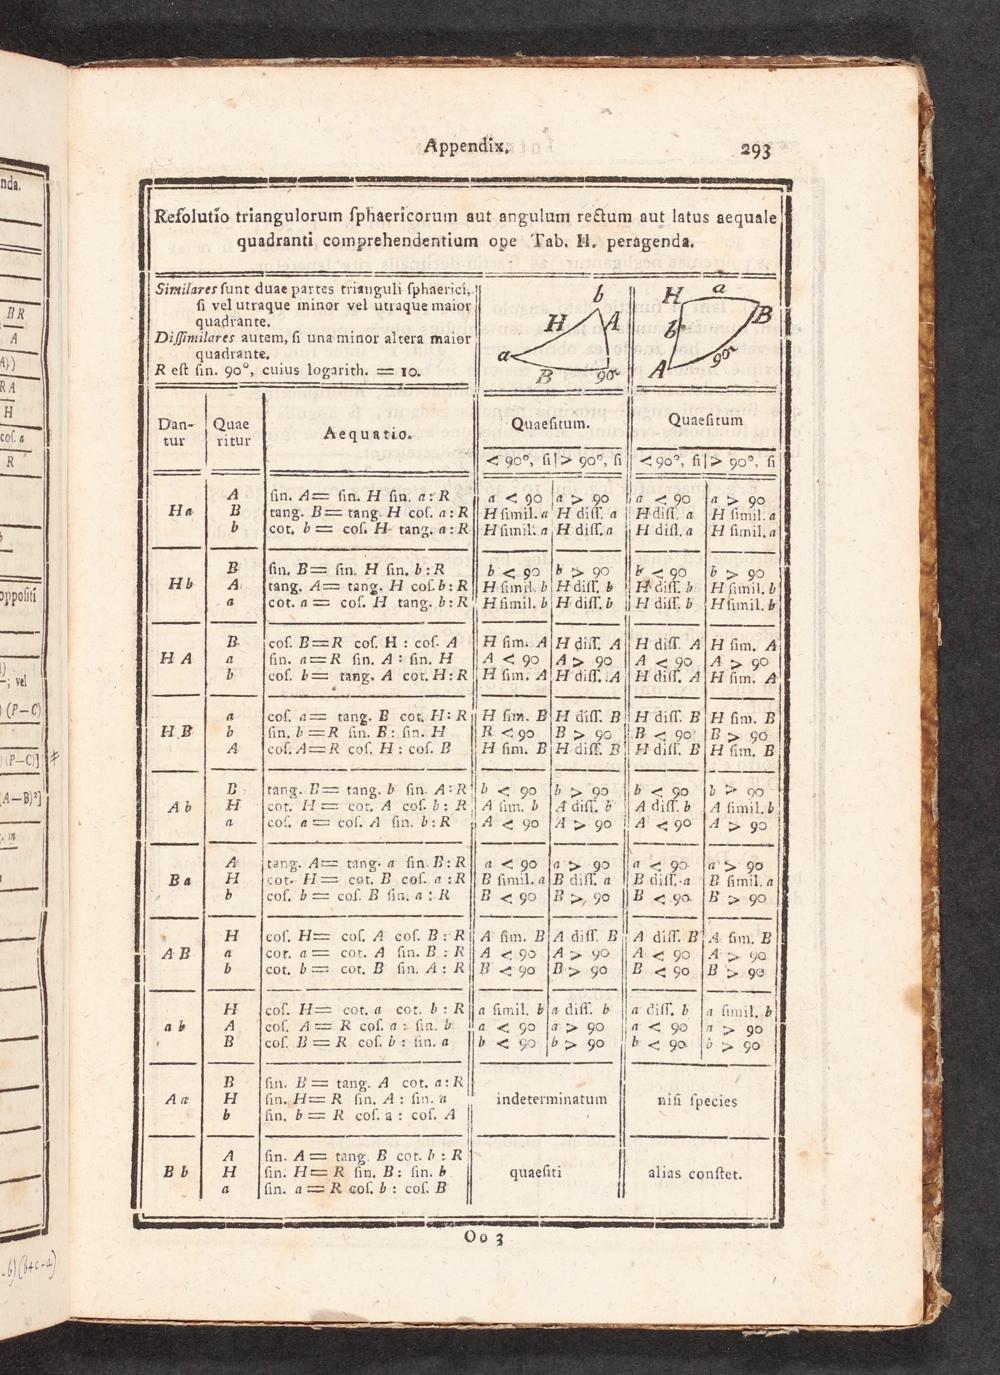 Appendix.
293
Reſolutio triangulorum ſphaericorum aut angulum rectum aut latus aequale
quadranti comprehendentium ope Tab. H. peragenda.
Similares ſunt duae partes trianguli ſphaerici,
ſi vel utraque minor vel utraque maior
quadrante.
Diſſimilares autem, ſi una minor altera maior
quadrante.
R eſt ſin. 90°, cuius logarith. = 10.
b
H A
a
B 90°
H a
B
b
A 90°
Dan-
tur
Quae
ritur
Aequatio.
Quaeſitum.
Quaeſitum
< 90°, ſi > 90°, ſi < 90°, ſi > 90°, ſi
A ſin. A = ſin. H ſin. a : R a < 90 a > 90 a < 90 a > 90
H a B tang. B = tang. H coſ. a : R H ſimil. a H diſſ. a H diſſ. a H ſimil. a
b cot. b = coſ. H tang. a : R H ſimil. a H diſſ. a H diſſ. a H ſimil. a
B ſin. B = ſin. H ſin. b : R b < 90 b > 90 b < 90 b > 90
H b A tang. A = tang. H coſ. b : R H ſimil. b H diſſ. b H diſſ. b H ſimil. b
a cot. a = coſ. H tang. b : R H ſimil. b H diſſ. b H diſſ. b H ſimil. b
B coſ. B = R coſ. H : coſ. A H ſim. A H diſſ. A H diſſ. A H ſim. A
H A a ſin. a = R ſin. A : ſin. H A < 90 A > 90 A < 90 A > 90
b coſ. b = tang. A cot. H : R H ſim. A H diſſ. A H diſſ. A H ſim. A
a coſ. a = tang. B cot. H : R H ſim. B H diſſ. B H diſſ. B H ſim. B
H B b ſin. b = R ſin. B : ſin. H R < 90 B > 90 B < 90 B > 90
A coſ. A = R coſ. H : coſ. B H ſim. B H diſſ. B H diſſ. B H ſim. B
B tang. B = tang. b ſin. A : R b < 90 b > 90 b < 90 b > 90
A b H cot. H = cot. A coſ. b : R A ſim. b A diſſ. b A diſſ. b A ſimil. b
a coſ. a = coſ. A ſin. b : R A < 90 A > 90 A < 90 A > 90
A tang. A = tang. a ſin. B : R a < 90 a > 90 a < 90 a > 90
B a H cot. H = cot. B coſ. a : R B ſimil. a B diſſ. a B diſſ. a B ſimil. a
b coſ. b = coſ. B ſin. a : R B < 90 B > 90 B < 90 B > 90
H coſ. H = coſ. A coſ. B : R A ſim. B A diſſ. B A diſſ. B A ſim. B
A B a cot. a = cot. A ſin. B : R A < 90 A > 90 A < 90 A > 90
b cot. b = cot. B ſin. A : R B < 90 B > 90 B < 90 B > 90
H coſ. H = cot. a cot. b : R a ſimil. b a diſſ. b a diſſ. b a ſimil. b
a b A coſ. A = R coſ. a : ſin. b a < 90 a > 90 a < 90 a > 90
B coſ. B = R coſ. b : ſin. a b < 90 b > 90 b < 90 b > 90
B ſin. B = tang. A cot. a : R
A a H ſin. H = R ſin. A : ſin. a indeterminatum niſi ſpecies
b ſin. b = R coſ. a : coſ. A
A ſin. A = tang. B cot. b : R
B b H ſin. H = R ſin. B : ſin. b quaeſiti alias conſtet.
a ſin. a = R coſ. b : coſ. B
Oo 3
nda.
BR
A
RA
H
coſ. a
R
oppoſiti
; vel
(P—C)
(P—C)]
(A—B)²]